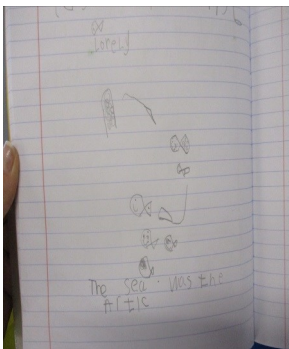 Lorely
The sea. Has the
Artic